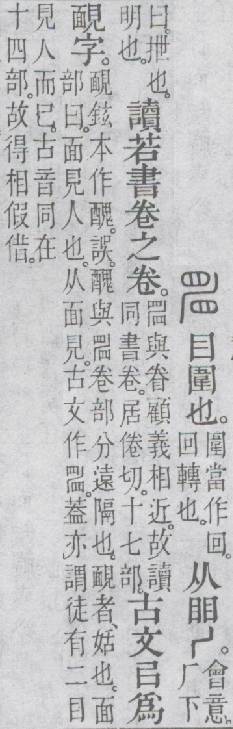 𥃩目圍也。圍當作回。回轉也。从䀠𠃋。會意。厂下
曰抴也。明也。讀若書卷之卷。𥃩與眷顧義相近。故讀同書卷。居倦切。十七部。古文㠯爲
靦字。靦鉉本作醜。誤。醜與𥃩卷部分遠隔也。靦者、姡也。面部曰。面見人也。从面見。古文作𥃩。蓋亦謂徒有二目
見人而已。古音同在十四部。故得相假借。